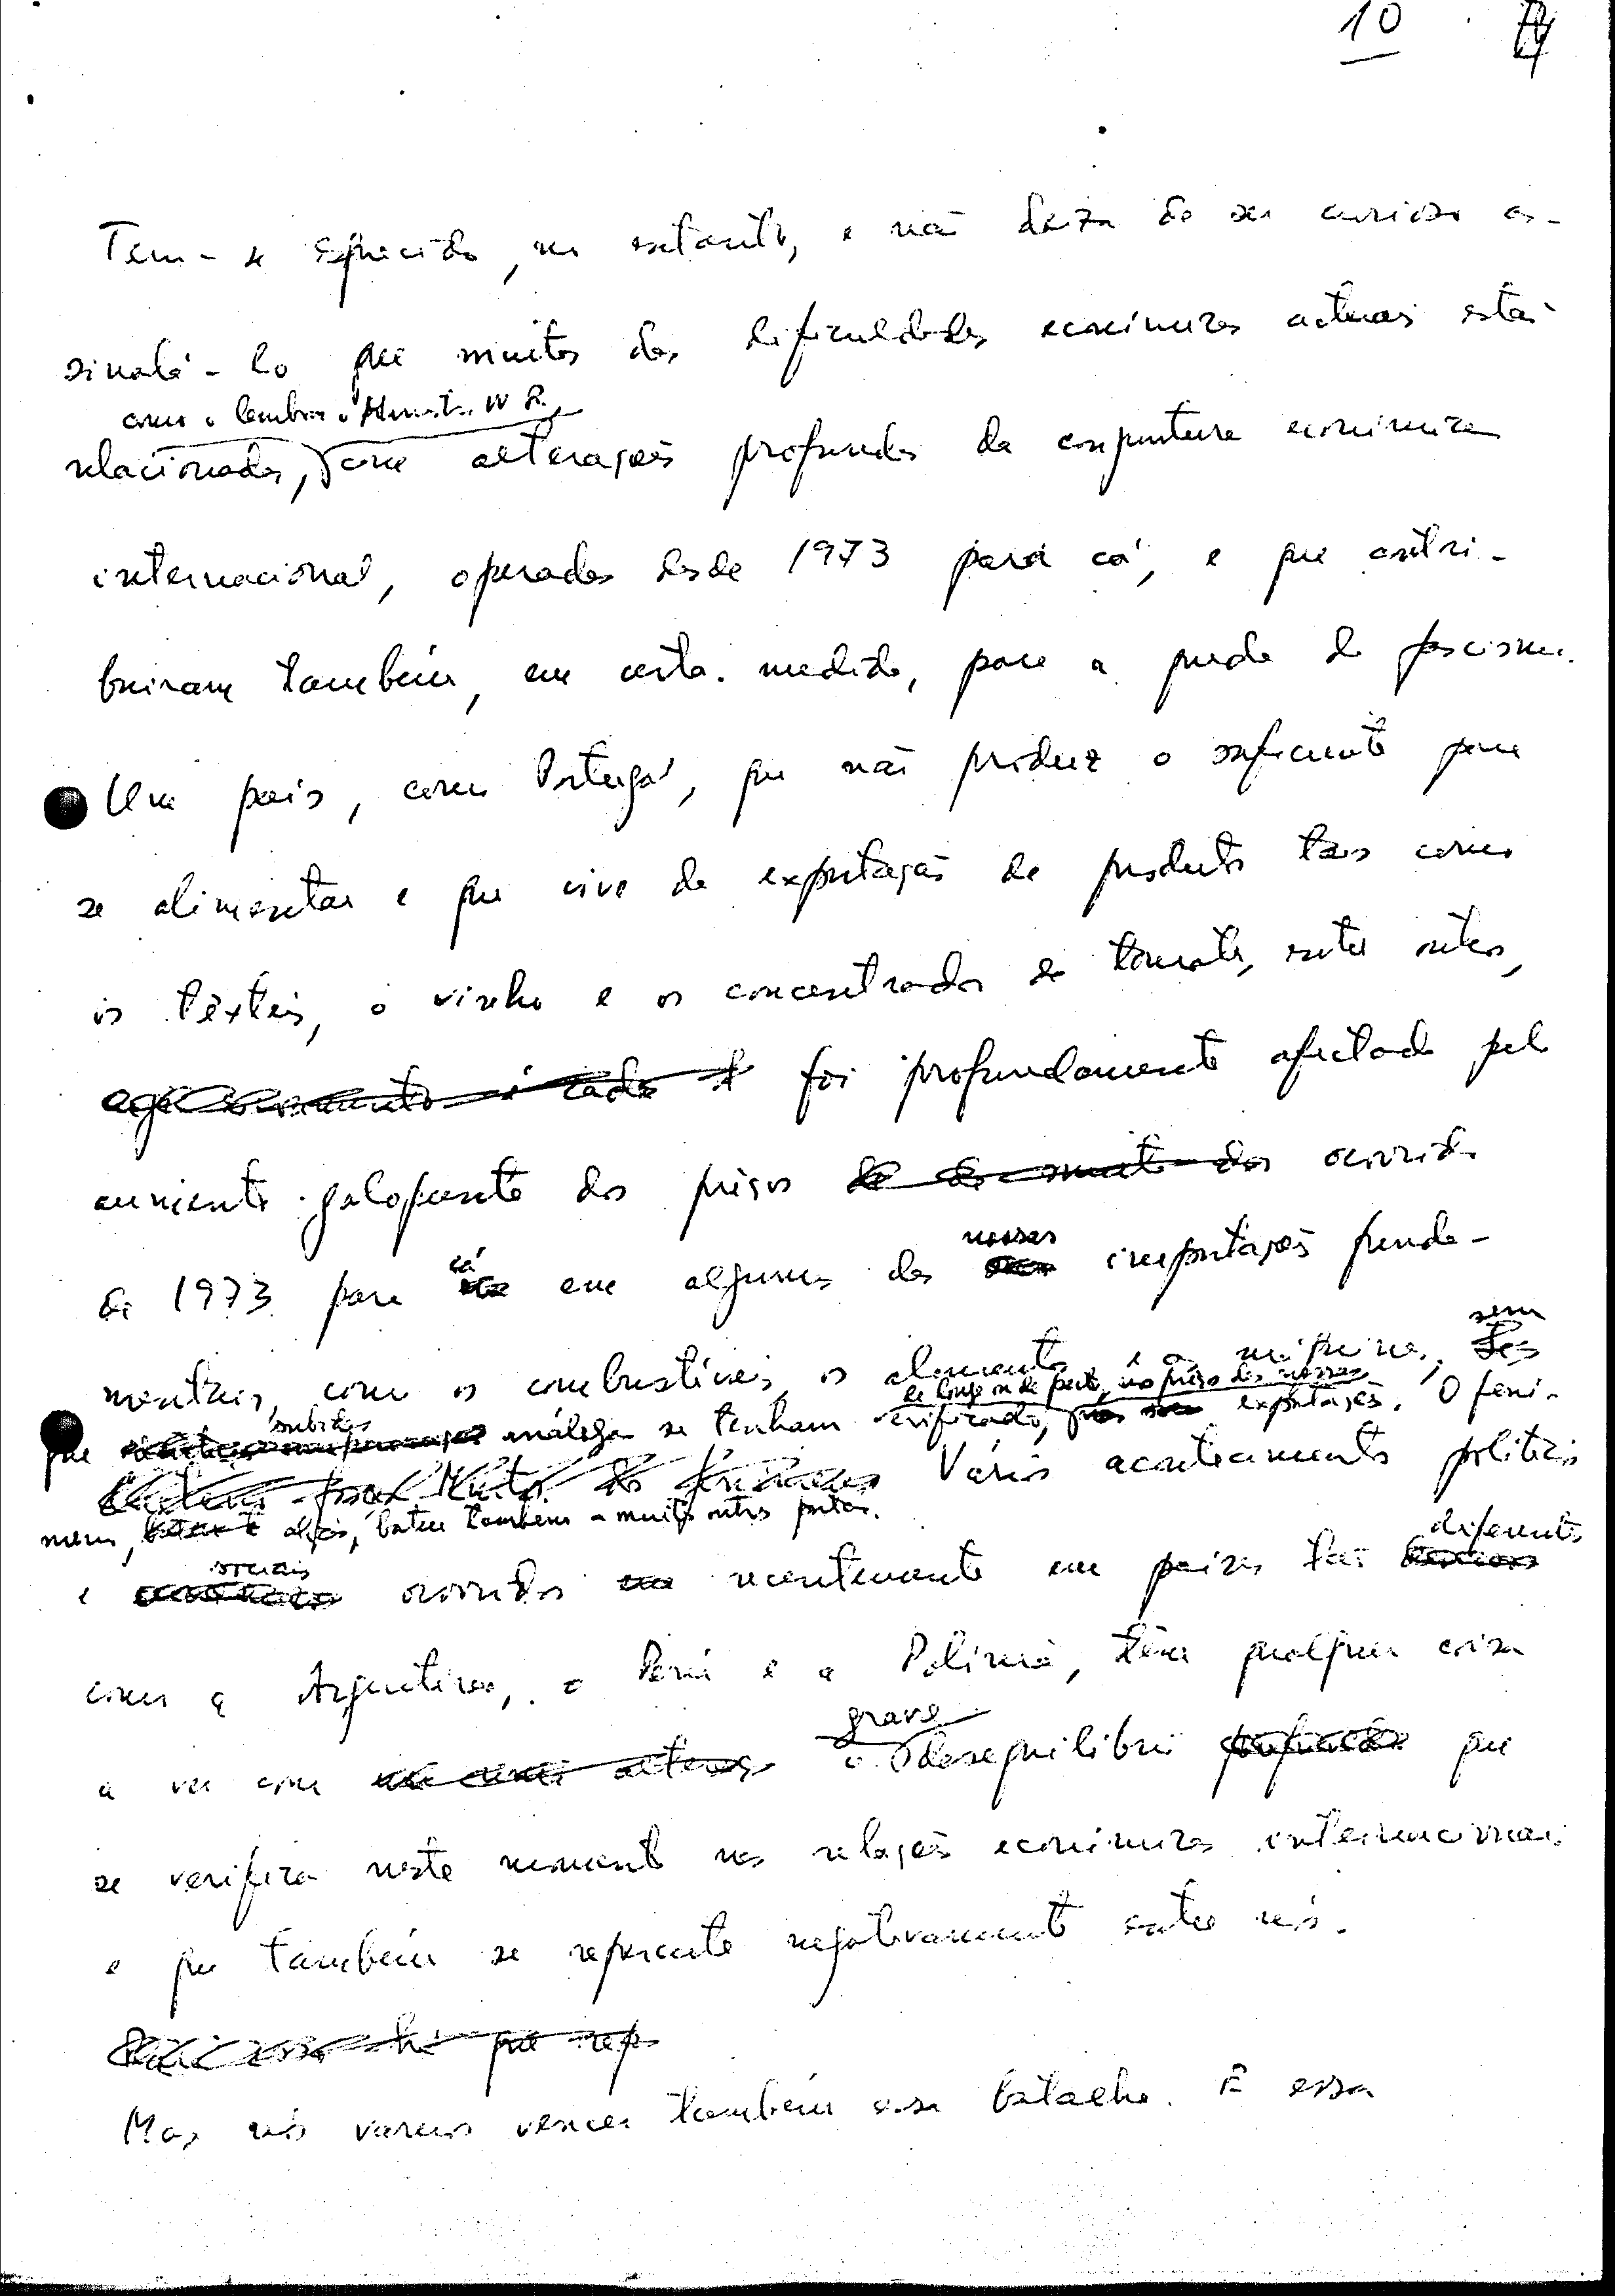 10
Tem-se esquecido, no entanto, e não deixa de ser curioso as-
sinalá-lo que muitas das dificuldades económicas actuais estão
como o lembrou o Ministro W R.,
relacionadas, com alterações profundas da conjuntura económica
internacional, operadas desde 1973 para cá, e que contri-
buiram também, em certa medida, para a queda do fascismo.
Um país, como Portugal, que não produz o suficiente para
se alimentar e que vive da exportação de produtos tais como
os têxteis, o vinho e os concentrados de tomate, entre outros,
foi profundamente afectado pelo
aumento galopante dos preços ocorrido
cá nossas
de 1973 para em algumas das importações funda-
sem
mentais, como os combustíveis, os alimentos e a
de longe ou de perto, no preço das nossas
subidas
que análoga se tenham verificado, exportações. O fenó-
Vários acontecimentos políticos
meno, aliás, bateu também a muitas outras portas.
sociais diferentes
e ocorridos recentemente em países tão
como a Argentina, o Perú e a Polónia, têm qualquer coisa
grave
a ver com o desequilíbrio que
se verifica neste momento nas relações económicas internacionais
e que também se repercute negativamente entre nós.
Mas nós vamos vencer também essa batalha. É essa